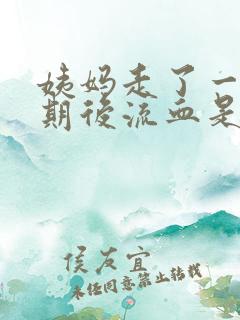 姨妈走了一
期後流血是
侯友宜
未经同意禁止转载